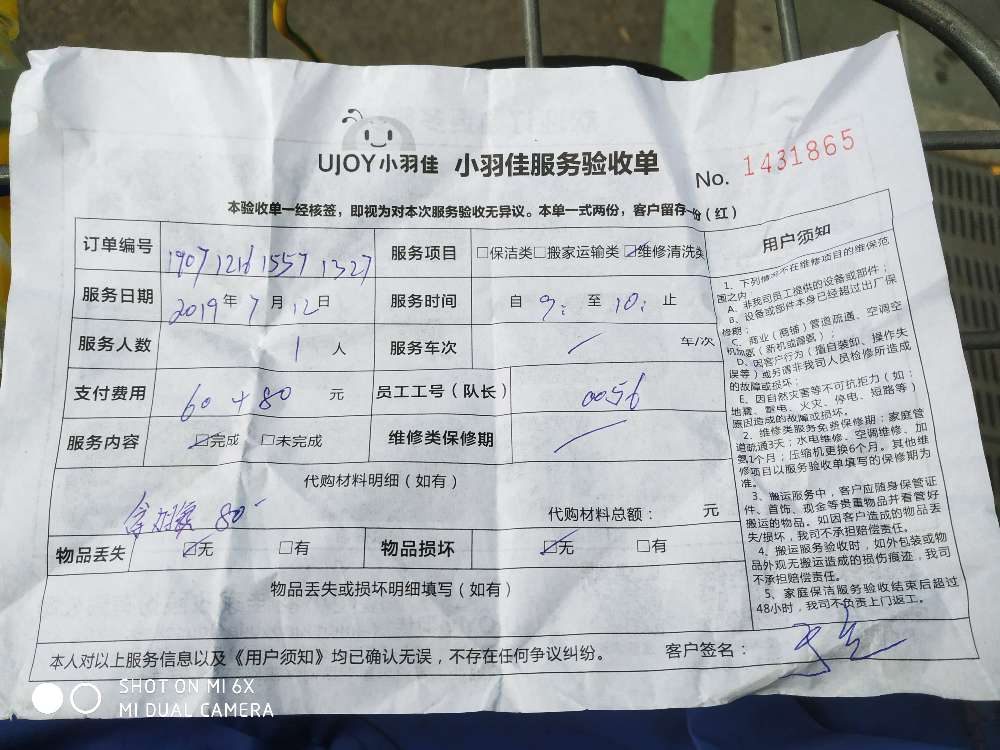 UJOY小羽佳 小羽佳服务验收单 No. 1431865
本验收单一经核签，即视为对本次服务验收无异议。本单一式两份，客户留存一份（红）
订单编号 1907121615571327 服务项目 □保洁类□搬家运输类☑维修清洗类
服务日期 2019年7月12日 服务时间 自 9: 至 10: 止
服务人数 1 人 服务车次 / 车/次
支付费用 60+80 元 员工工号（队长） 0056
服务内容 ☑完成 □未完成 维修类保修期 /
代购材料明细（如有）
80-
代购材料总额： 元
物品丢失 ☑无 □有 物品损坏 ☑无 □有
物品丢失或损坏明细填写（如有）
本人对以上服务信息以及《用户须知》均已确认无误，不存在任何争议纠纷。 客户签名：
用户须知
1、下列情况不在维修项目的维保范
围之内
A、非我司员工提供的设备或部件；
B、设备或部件本身已经超过出厂保
修期；
C、商业（商铺）管道疏通、空调空
机加氨（新机或增氨）
D、因客户行为（擅自装卸、操作失
误等）或另请非我司人员检修所造成
的故障或损坏；
E、因自然灾害等不可抗拒力（如；
地震、雷电、火灾、停电、短路等）
原因造成的故障或损坏。
2、维修类服务免费保修期；家庭管
道疏通3天；水电维修、空调维修、加
氨1个月；压缩机更换6个月。其他维
修项目以服务验收单填写的保修期为
准。
3、搬运服务中，客户应随身保管证
件、首饰、现金等贵重物品并看管好
搬运的物品。如因客户造成的物品丢
失/损坏，我司不承担赔偿责任。
4、搬运服务验收时，如外包装或物
品外观无搬运造成的损伤痕迹，我司
不承担赔偿责任。
5、家庭保洁服务验收结束后超过
48小时，我司不负责上门返工。
SHOT ON MI 6X
MI DUAL CAMERA